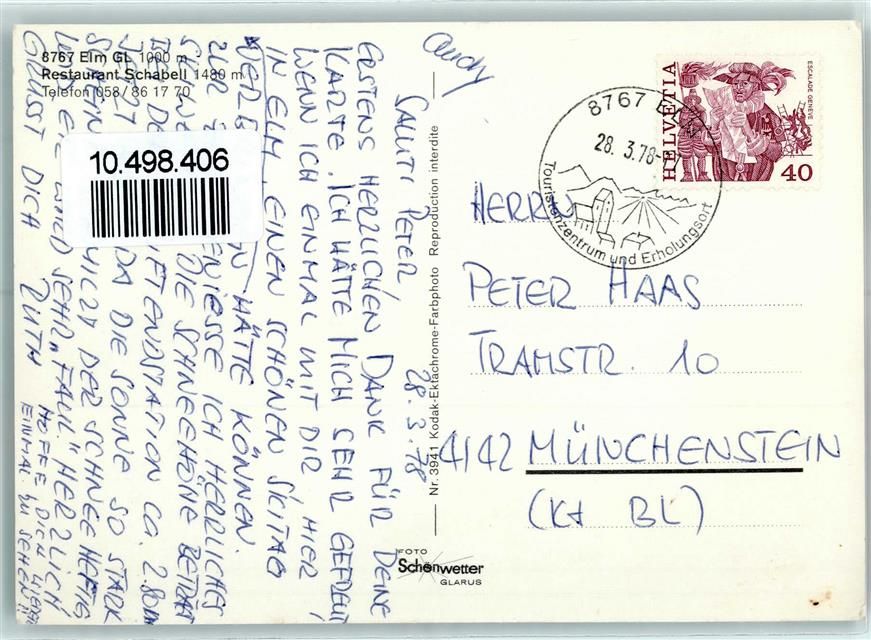 8767 Elm GL 1000 m
Restaurant Schabell 1480 m
Telefon 058/86 17 70
10.498.406
SALUTI PETER 28.3.78
ERSTENS HERZLICHEN DANK FÜR DEINE
KARTE. ICH HÄTTE MICH SEHR GEFREUT,
WENN ICH EINMAL MIT DIR HIER
IN ELM EINEN SCHÖNEN SKITAG
HÄTTE KÖNNEN.
ZUR ICH HERRLICHES
DIE SCHNEEHÖHE BETRÄGT
CA. 2.80m
JETZT DA DIE SONNE SO STARK
WIRD DER SCHNEE HEFTIG
WIRD SEHR "FAUL". HERZLICH
GRÜSST DICH RUTH
HOFFE DICH WIEDER
EINMAL ZU SEHEN!!
Nr. 3941 Kodak-Ektachrome-Farbphoto Reproduction interdite
FOTO
Schönwetter
GLARUS
HELVETIA
ESCALADE GENÈVE
40
8767 ELM
28.3.78-17
Touristenzentrum und Erholungsort
HERRN
PETER HAAS
TRAMSTR. 10
4142 MÜNCHENSTEIN
(Kt BL)